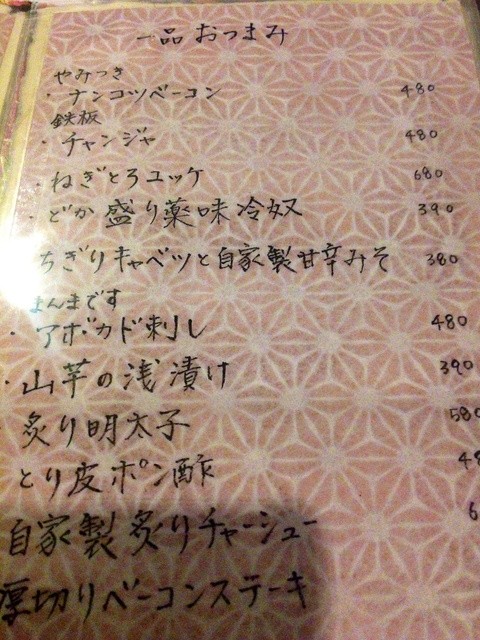 一品おつまみ
やみつき
・ナンコツベーコン 480
鉄板
・チャンジャ 480
・ねぎとろユッケ 680
・どか盛り薬味冷奴 390
ちぎりキャベツと自家製甘辛みそ 380
まんまです
・アボカド刺し 480
・山芋の浅漬け 390
炙り明太子 580
とり皮ポン酢 48
自家製炙りチャーシュー 6
厚切りベーコンステーキ